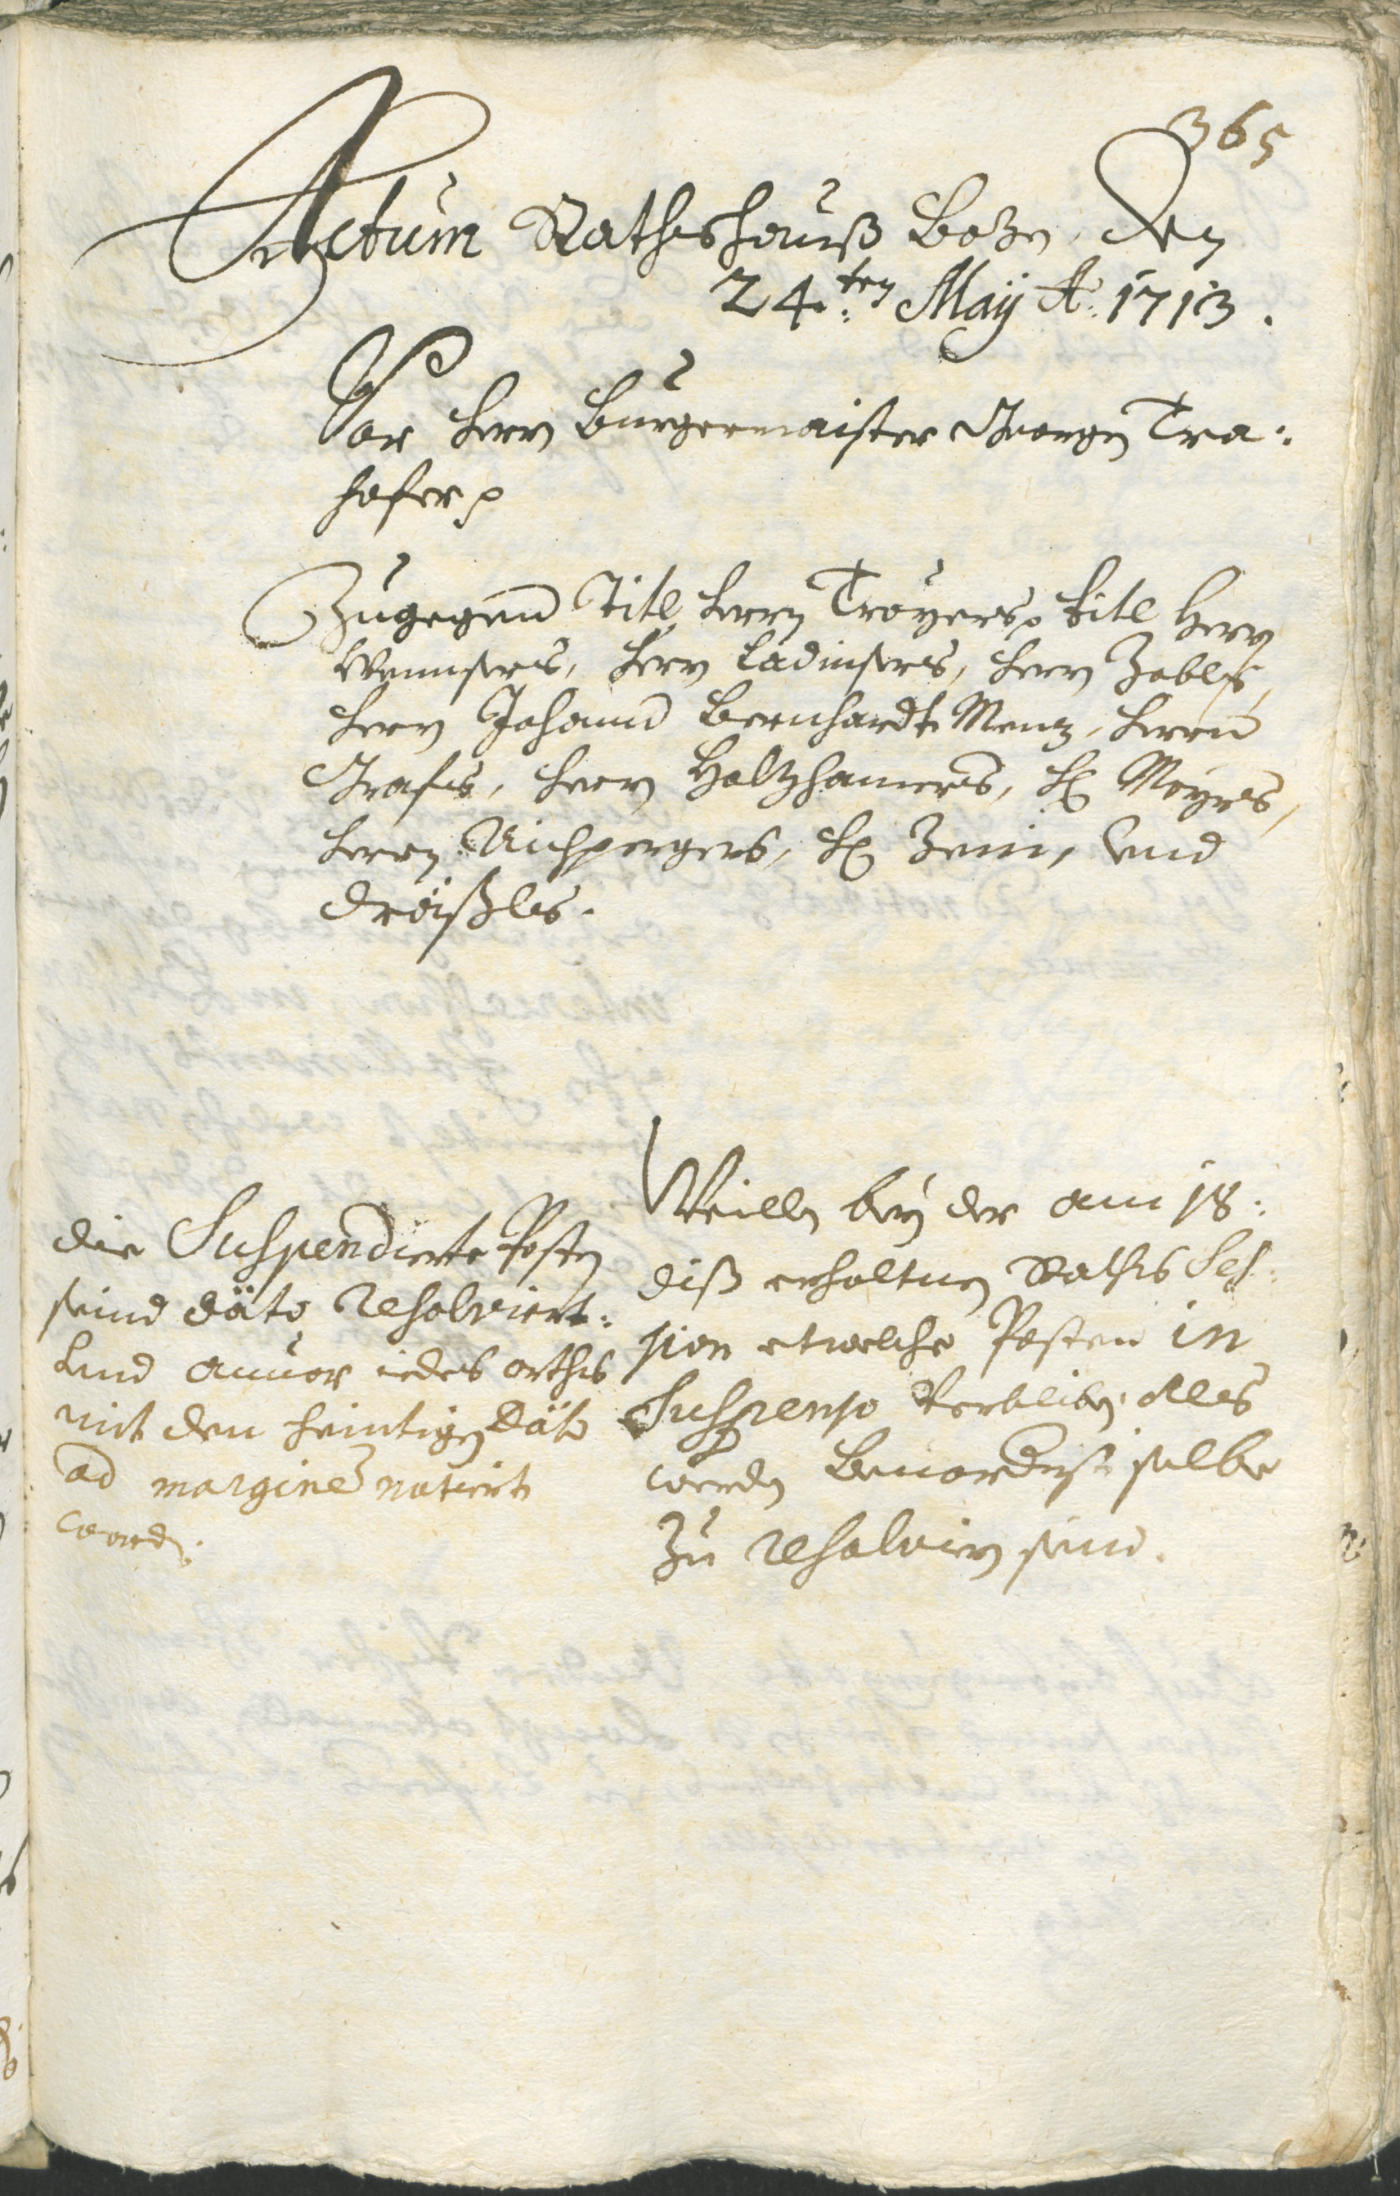 365
Actum Rathshauß Bozn, den
24.ten Maÿ A: 1713.
Vor Herrn Burgermaister Georgen Tra:
hofer p
Zugegend Titl Herrn Troyers p titl Herrn
Wennsers, Herrn Ladinsers, Herrn Zobls,
Herrn Johannd Bernhardt Menz, Herrn
Grafes, Herrn Holtzhamers, H: Moyrs,
Herrn Aichpergers, H: Zenin, und
Dräxles.
Weillen beÿ der am 18:
diß erhaltnen Raths Ses:
sion etwelche Posten in
Suspenso verbliben. Alles
werden Bevordrist selbe
zu resolviern sein.
die Suspendierte Posten
seind däto Resolviert:
und anvor iedes orths
mit den heuntigen Däto
ad margine notiert
word: